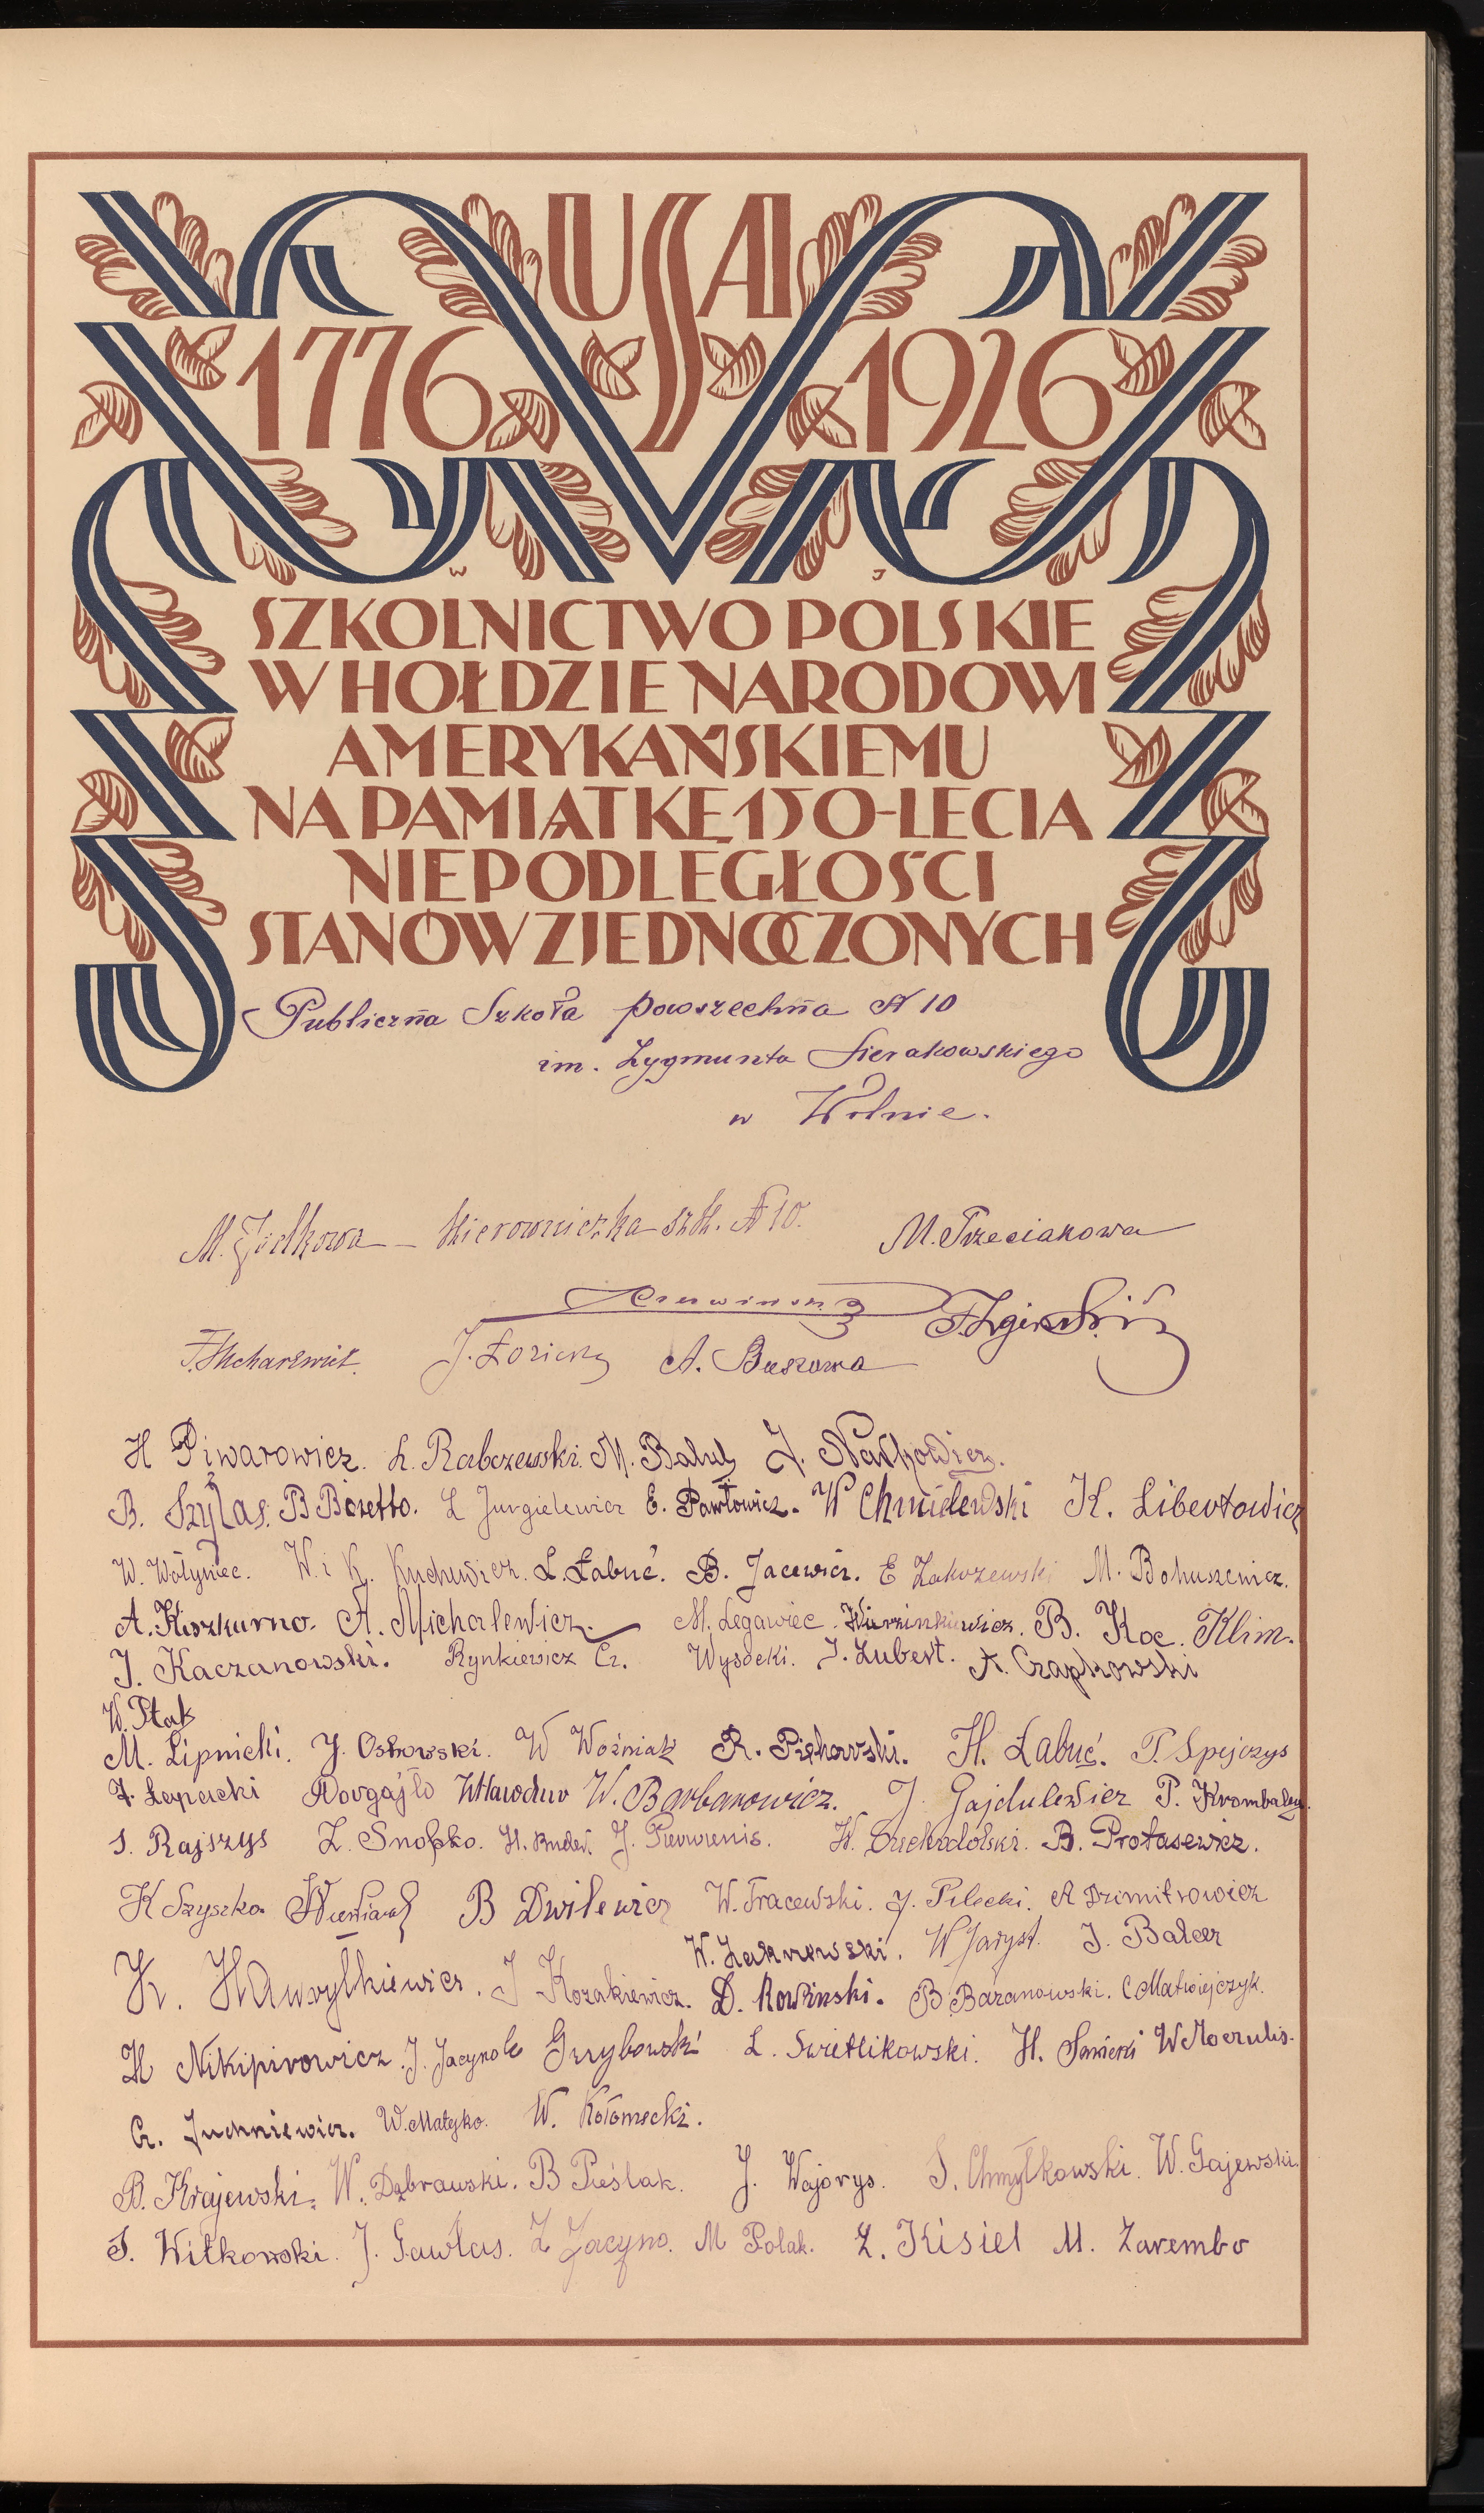 USA
1776 1926
W J
SZKOLNICTWO POLSKIE
W HOŁDZIE NARODOWI
AMERYKAŃSKIEMU
NA PAMIĄTKĘ 150-LECIA
NIEPODLEGŁOŚCI
STANÓW ZJEDNOCZONYCH
Publiczna Szkoła powszechna N 10
im. Zygmunta Sierakowskiego
w Wilnie.
M. Ziółkowa – kierowniczka szk. N 10. M. Trzeciakowa
Czerwińska
J. Łozicki A. Buszowa
H Piwarowicz. L. Rabczewski. M. Baluł J. Naćkowicz.
B. Szyłas. B Bozetto. L Jurgielewicz E. Pawłowicz. W Chmielewski K. Libertowicz
W. Wołyniec. W. i K. Kuchewicz. L. Łabuć. B. Jacewicz. E Zakrzewski M. Bohuszewicz.
A. Kiszkurno. A. Michalewicz. M. Legawiec. Wierzinkiewicz. B. Koc. Klim.
J. Kaczanowski. Rynkiewicz Cz. Wysocki. J. Lubert. A. Czapkowski
W. Ptak
M. Lipnicki. J. Ostrowski. W Woźniak R. Piękowski. H. Łabuć. P. Spejczys
Z. Łapacki Dowgajło W. Barbarowicz. J. Gajdulewicz P.
S. Rajszys L. Snopko. J. Pierwienis. W. Suchodolski. B. Protasewicz.
K Szyszko. B Dwilewicz W. Tracewski. J. Pilecki. A Dzimitrowicz
W. Zakrzewski. W Jaryst. J. Balcer
K. Hawryłkiewicz. J Kozakiewicz. D. Rowinski. B. Baranowski. C Matwiejczyk.
H Nikipirowicz. J. Jacyno Grzybowski L. Swietlikowski. H. Sawicki W Moczulis.
Cz. Juchniewicz. W. Matejko. W. Kołomecki.
B. Krajewski. W. Dąbrowski. B Pieślak. J. Wojarys. S. Chmyłkowski. W. Gajewski.
S. Witkowski. J. Gawlas. Z Jacyno. M Polak. Z. Kisiel M. Zarembo